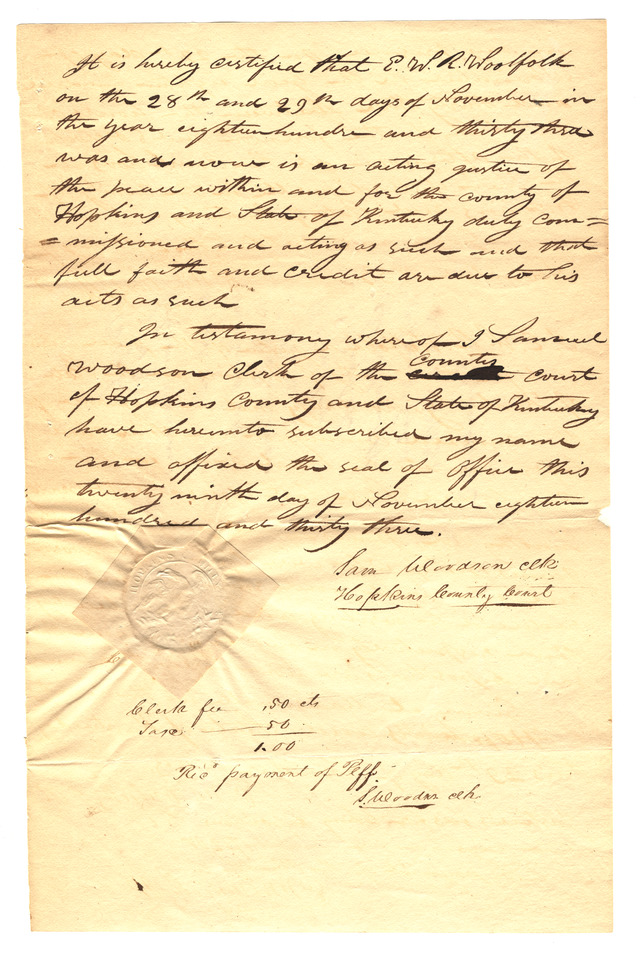 It is hereby certified that E. W. R. Woolfolk
on the 28th and 29th days of November in
the year eighteen hundre and thirty three
was and now is an acting justice of
the peace within and for the county of
Hopkins and State of Kentucky duly com=
= missioned and acting as such and that
full faith and credit are due to his
acts as such
In testimony where of I Samuel
Woodson Clerk of the County court
of Hopkins County and State of Kentucky
have hereunto subscribed my name
and affixed the seal of office this
twenty ninth day of November eighteen
hundred and thirty three.
Sam Woodson clk
Hopkins County Court
Clerk fee .50 cts
Tax 50
1.00
Recd payment of Plff
S. Woodson clk